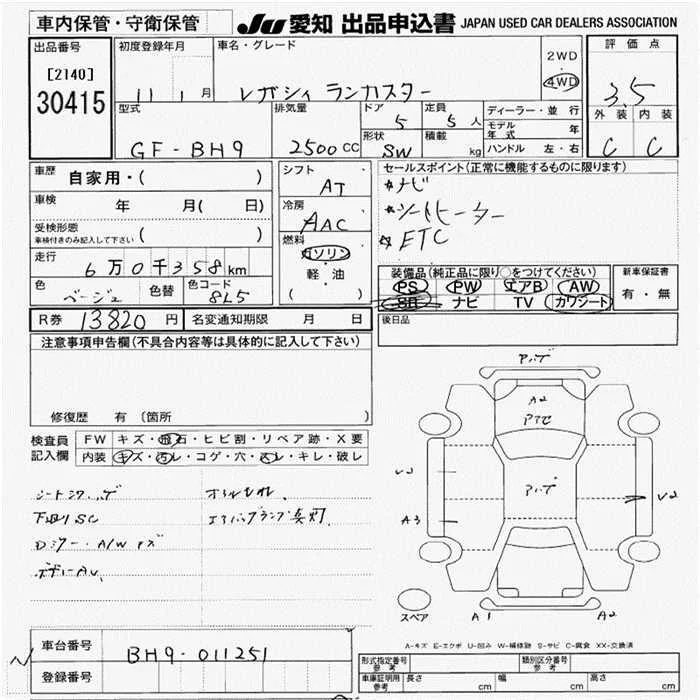 車内保管・守衛保管
JU 愛知 出品申込書 JAPAN USED CAR DEALERS ASSOCIATION
出品番号 初度登録年月 車名・グレード 2WD・4WD 評価点
[2140] 11 1月 レガシィ ランカスター 3.5
30415 型式 排気量 ドア 定員 ディーラー・並行 外装 内装
5 5人 モデル年式 年
GF-BH9 2500CC 形状 積載 ハンドル 左・右 C C
SW kg
車歴 自家用・( ) シフト AT セールスポイント(正常に機能するものに限ります)
車検 年 月( 日) 冷房 AAC ☆ナビ
受検形態 ( ) ☆シートヒーター
車検付きのみ記入して下さい 燃料 ☆ETC
走行 6万0千358km ガソリン
色 ベージュ 色替 色コード 8L5 軽・油 ( )
装備品(純正品に限り○をつけてください) 新車保証書
PS PW エアB AW 有・無
SR ナビ TV カワシート
R券 13820円 名変通知期限 月 日 後日品
注意事項申告欄(不具合内容等は具体的に記入して下さい)
修復歴 有 〔箇所 〕
検査員記入欄 FW キズ・飛石・ヒビ割・リペア跡・X要
内装 キズ・汚レ・コゲ・穴・スレ・キレ・破レ
下回りSC エアバッグランプ点灯
Dミラー・A/Wキズ
アハゲ
A2
アハゲ
A3
V2
スペア A1 A2
A-キズ E-エクボ U-凹み W-補修跡 S-サビ C-腐食 XX-交換済
車台番号 BH9-011251
登録番号
形式指定番号 参考 類別区分番号 参考
車庫証明用 参考 長さ cm 幅 cm 高さ cm